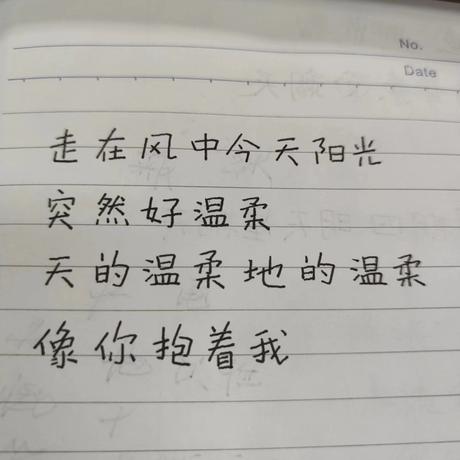 No.
Date
走在风中今天阳光
突然好温柔
天的温柔地的温柔
像你抱着我